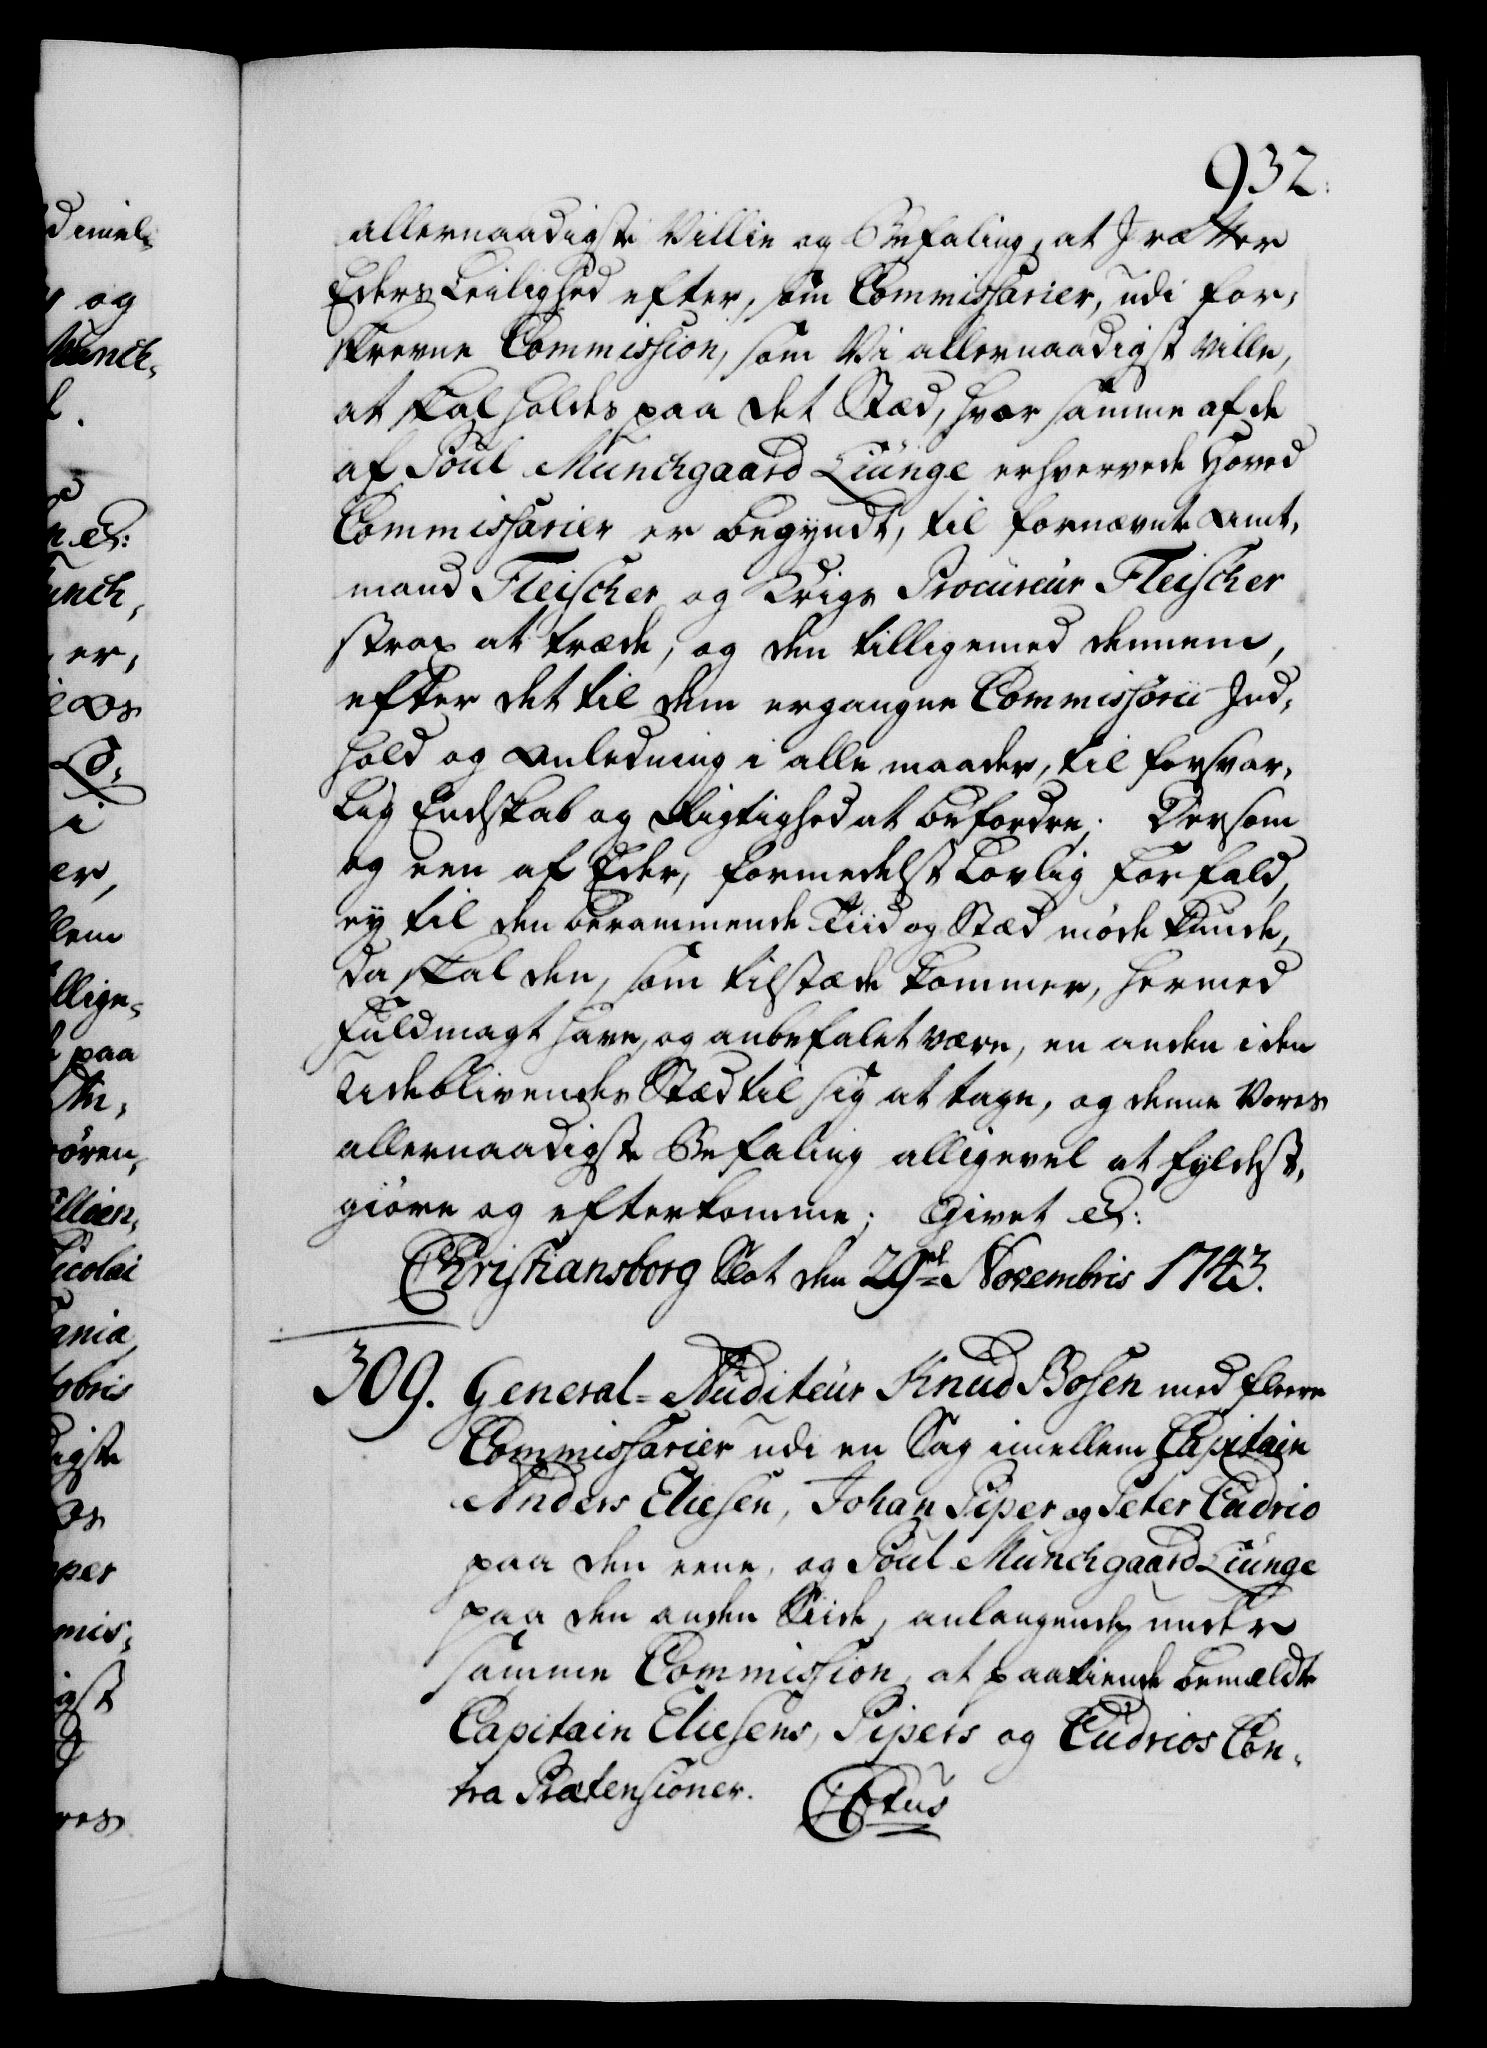 932.
allernaadigste Villie og Befaling, at I rætter
Eders Leilighed efter, som Commissarier, udi for-
skrevne Commission, som Vi allernaadigst ville,
at skal holdes paa det Stæd, hvor samme af de
af Poul Munchgaard Liunge erhvervede Hoved
Commissarier er begyndt, til fornævnte Amt-
mand Fleischer og Krigs Procureur Fleischer
strax at træde, og den tilligemed dennem,
efter det til dem ergangne Commissorii Ind-
hold og Anledning i alle maader, til forsvar-
lig Endskab og Rigtighed at befordre; Dersom
og een af Eder, formedelst Lovlig Forfald,
ey til den berammende Tiid og Stæd møde kunde,
da skal den, som tilstæde kommer, hermed
Fuldmagt have, og anbefalet være, en anden i den
Udeblivendes Stæd til sig at tage, og denne Vores
allernaadigste Befaling alligevel at fyldest-
giøre og efterkomme; Givet &:
Christiansborg Slot den 29de Novembris 1743.
309. General-Auditeur Knud Bosen med fleere
Commissarier udi en Sag imellem Capitain
Anders Eliesen, Johan Piper og Peter Cudrio
paa den eene, og Poul Munchgaard Liunge
paa den anden Siide, anlangende under
samme Commission, at paakiende bemældte
Capitain Eliesens, Pipers og Cudrios Con-
tra Prætensioner. C6tus
og
Munch-
er,
i
er,
paa
øren,
icolai
ania,
obris
igste
per
mis-